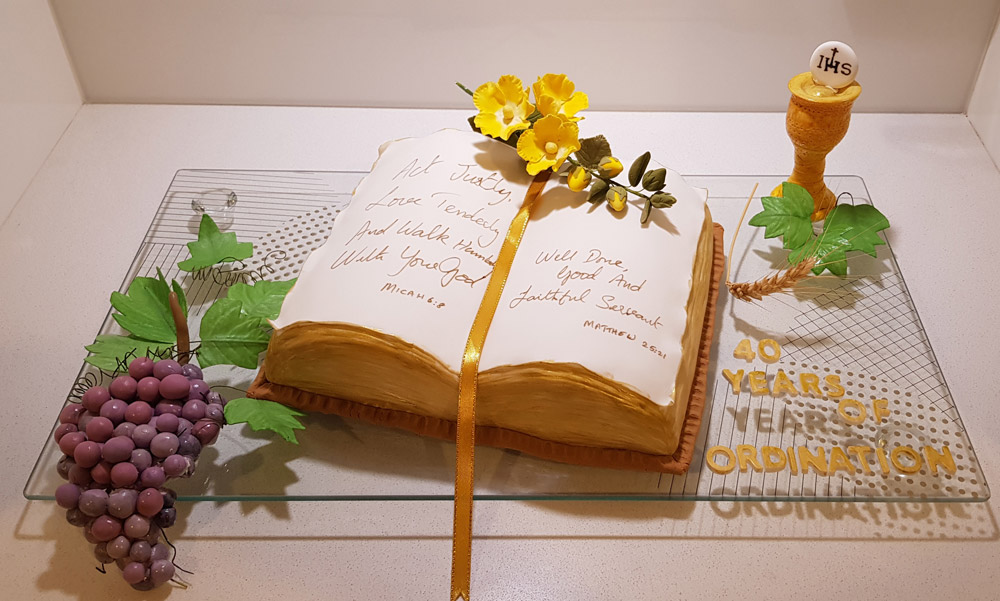 Act Justly,
Love Tenderly
And Walk Humbly
With Your God
MICAH 6:8
Well Done,
Good And
Faithful Servant
MATTHEW 25:21
IHS
40
YEARS
OF
ORDINATION